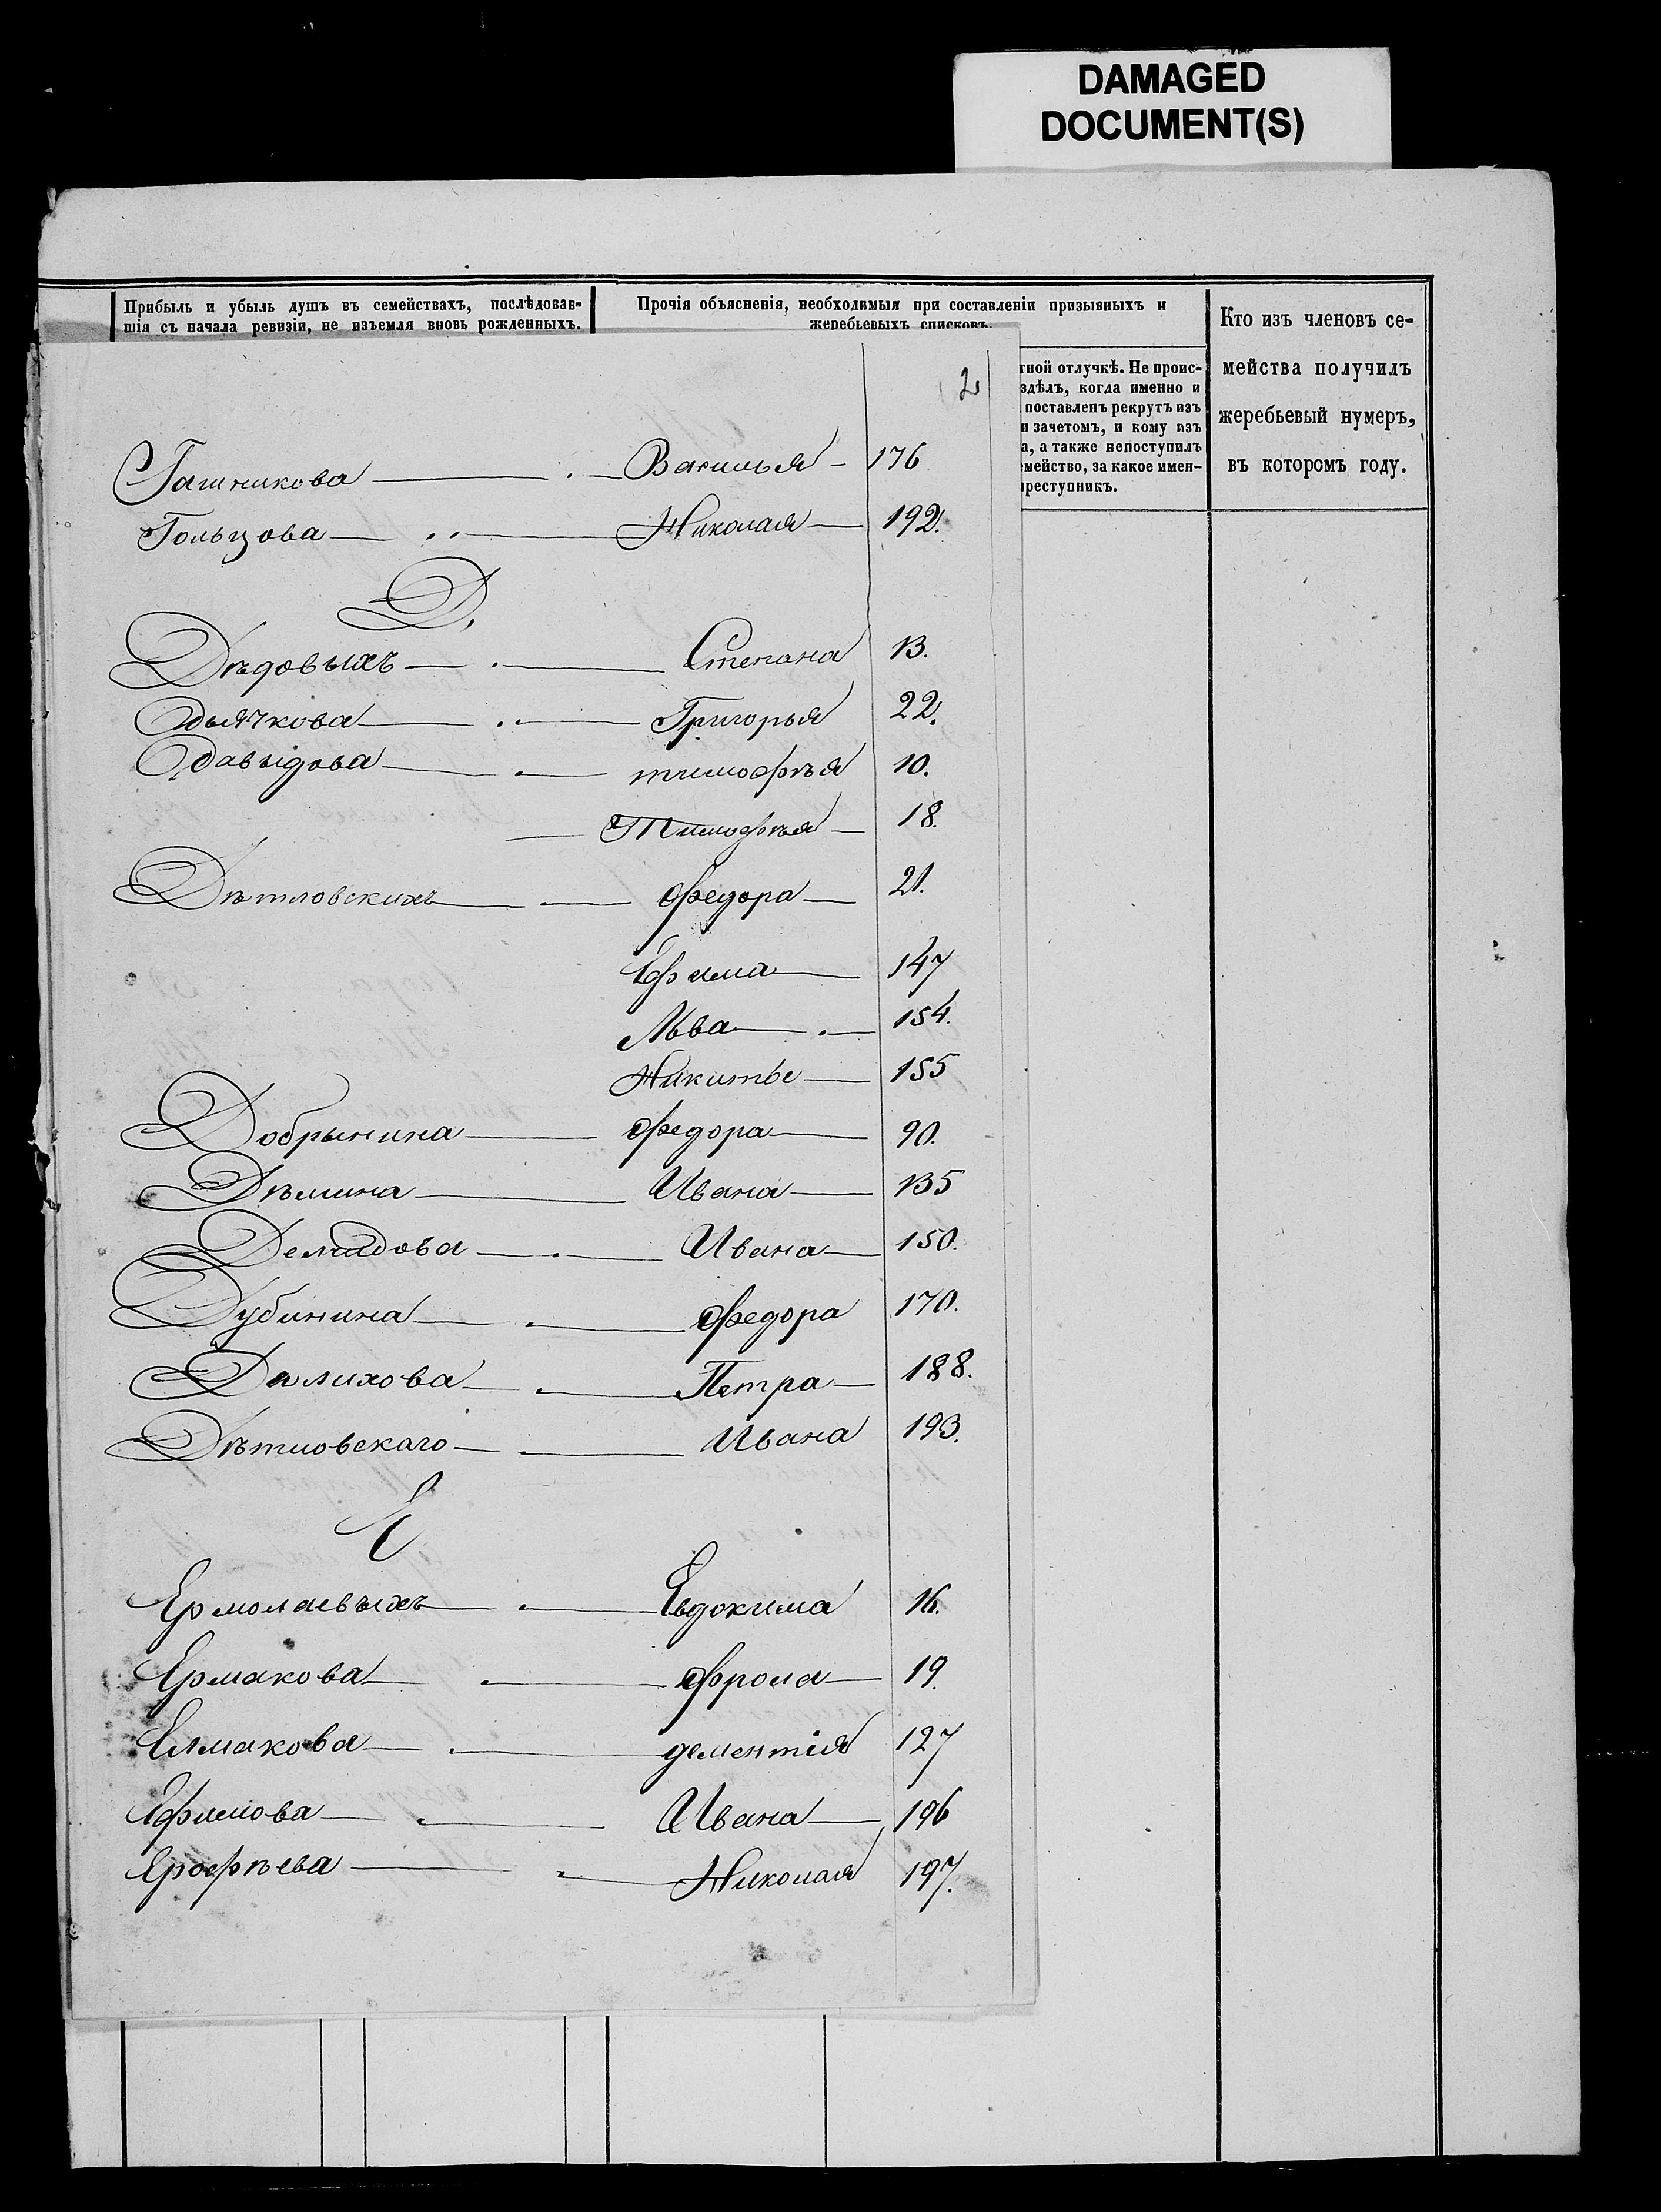 DAMAGED
DOCUMENT(S)
Прибыль и убыль душъ въ семействахъ, послѣдовав-
шія съ начала ревизіи, не изъемля вновь рожденныхъ.
Прочія объясненія, необходимыя при составленіи призывныхъ и
жеребьевыхъ списковъ.
Кто изъ членовъ се-
мейства получилъ
жеребьевый нумеръ,
въ которомъ году.
тной отлучкѣ. Не проис-
здѣлъ, когда именно и
поставленъ рекрутъ изъ
и зачетомъ, и кому изъ
а, а также непоступилъ
мейство, за какое имен-
преступникъ.
2
Гашникова Василья 176
Гольцова Николая 192.
Д.
Дѣдовыхъ Степана 13.
Дьячкова Григорья 22.
Давыдова тимофѣя 10.
Тимофѣя 18.
Дѣтловскихъ Федора 21.
Ефима 147
Льва 154.
Никитье 155
Добрынина Федора 90.
Дѣмина Ивана 135
Демидова Ивана 150.
Дубинина Федора 170.
Далихова Петра 188.
Дѣтловскаго Ивана 193.
Е
Ермолаевыхъ Евдокима 16.
Ермакова Фрола 19.
Елмакова дементія 127
Ефимова Ивана 196
Ерофѣева Николая 197.